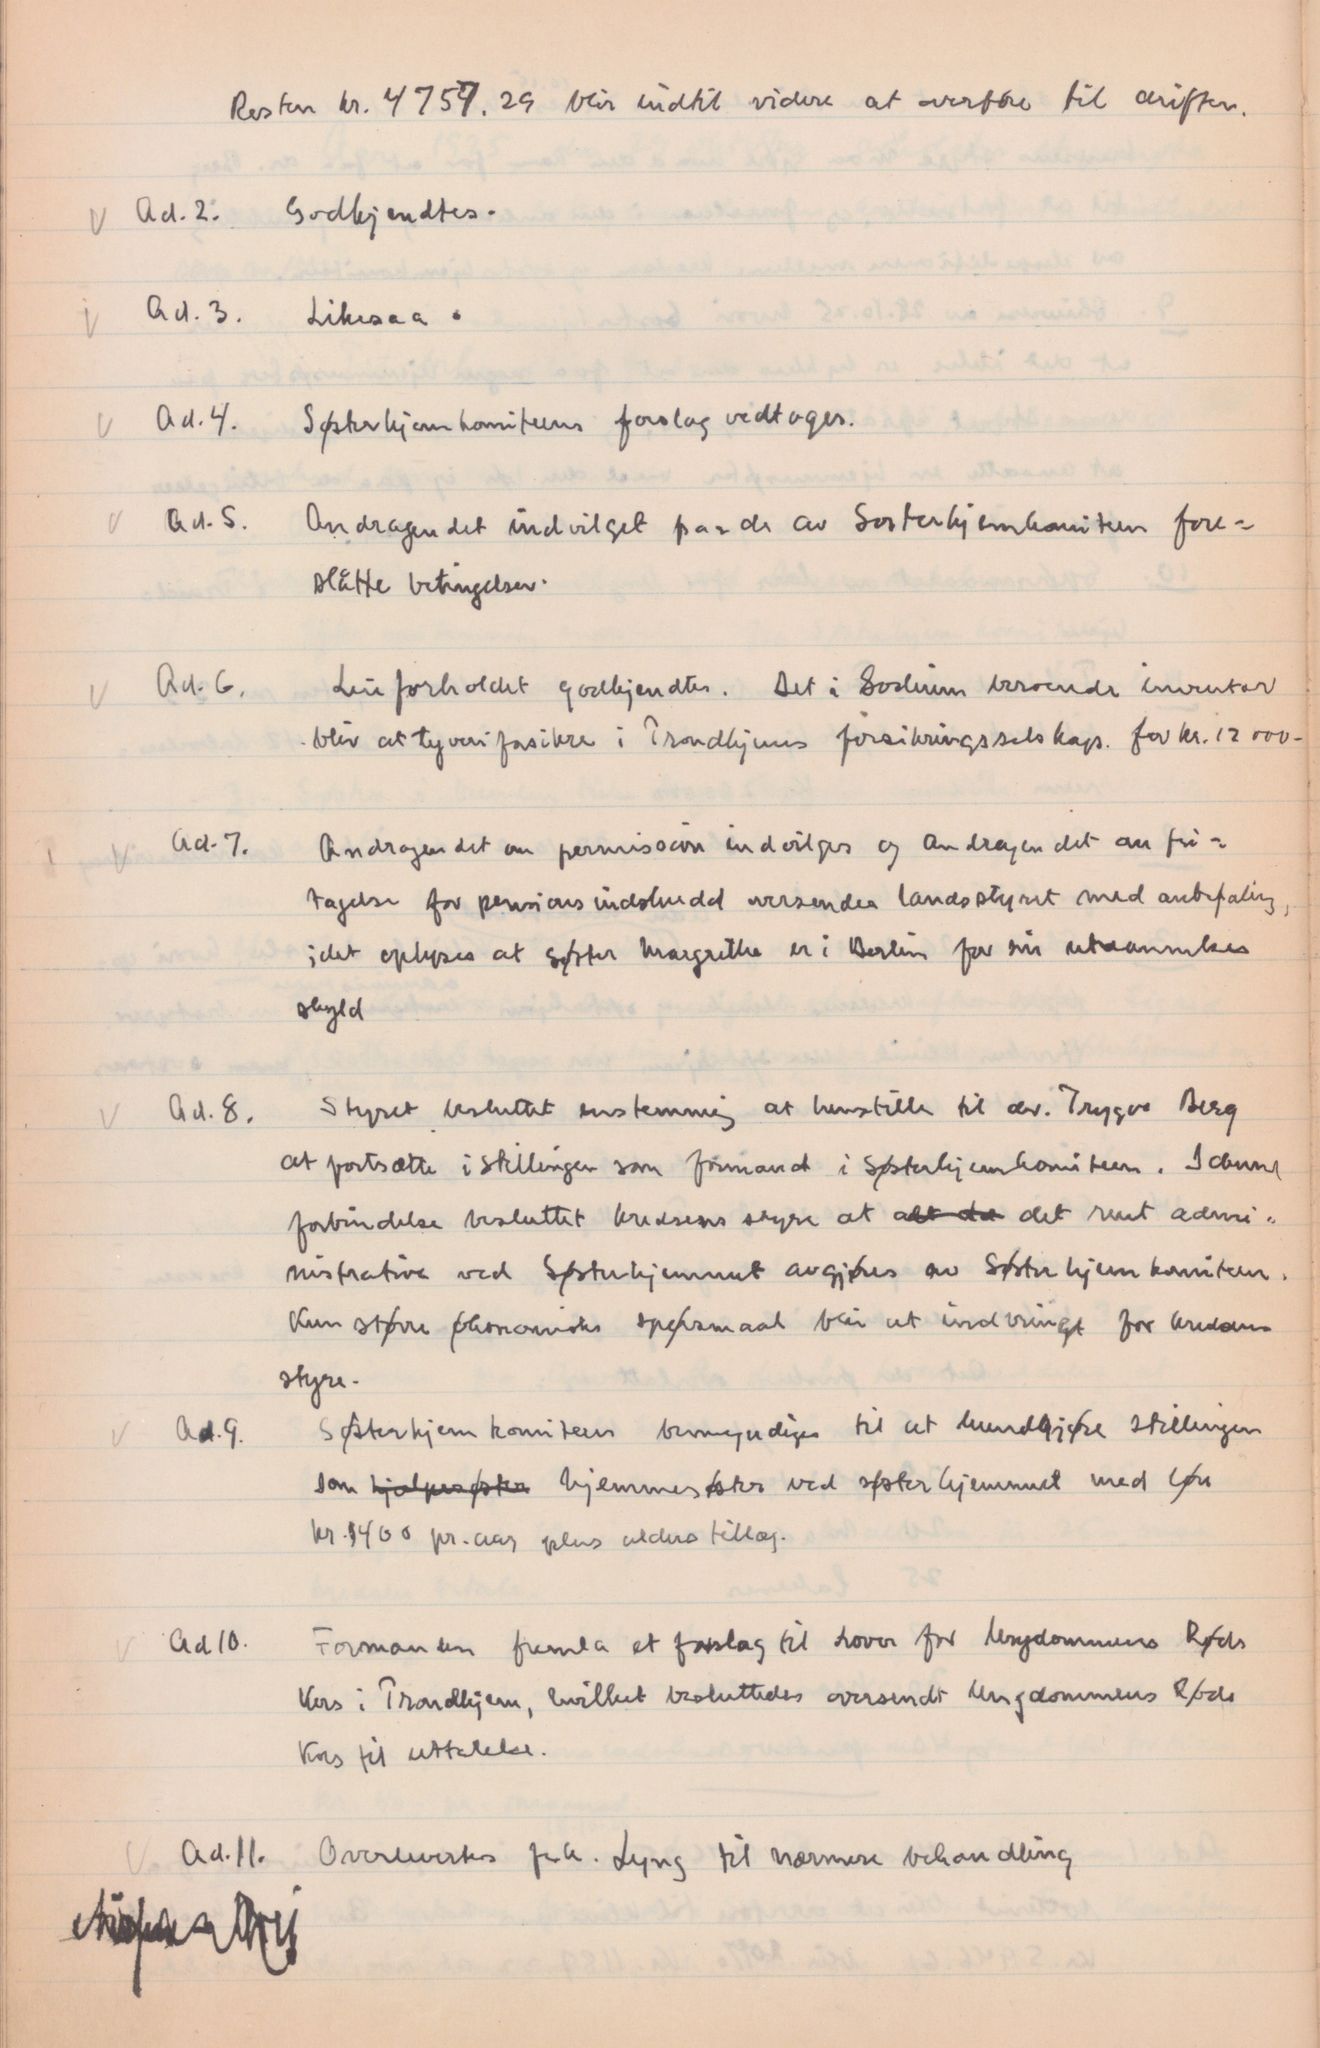 Resten kr. 4757.29 blir indtil videre at overføre til driften.
Ad. 2. Godkjendtes.
Ad. 3. Likesaa.
Ad. 4. Søsterhjemkomiteens forslag vedtages.
Ad. 5. Andragendet indvilget paa de av Søsterhjemkomiteen fore=
slåtte betingelser.
Ad. 6. Leieforholdet godkjendtes. Det i beroende inventar
blir at tyverifasikre i Trondhjems forsikringsselskap. for kr. 12000-
Ad. 7. Andragendet om permission indvilges og Andragendet om fri=
tagelse for pensionsindskudd oversendes landsstyret med anbefaling,
idet oplyses at søster Margrethe er i Berlin for sin utdannelses
skyld
Ad. 8. Styret besluttet enstemmig at henstille til dr. Trygve Berg
at fortsætte i stillingen som formand i Søsterhjemkomiteen. I denne
forbindelse besluttet kredsens styre at alt det det rent admi=
nistrative ved Søsterhjemmet avgjøres av Søsterhjemkomiteen.
Kun større økonomiske spørsmaal blir at indbringe for kredsens
styre.
Ad. 9. Søsterhjemkomiteen bemyndiges til at kundgjøre stillingen
som hjælpesøster hjemmesøster ved søsterhjemmet med løn
kr. 1400 pr. aar plus alderstillæg.
Ad 10. Formanden fremla et forslag til Lover for Ungdommens Røde
Kors i Trondhjem, hvilket besluttedes oversendt Ungdommens Røde
Kors til uttalelse.
Ad. 11. Overlevertes frk. Lyng til nærmere behandling